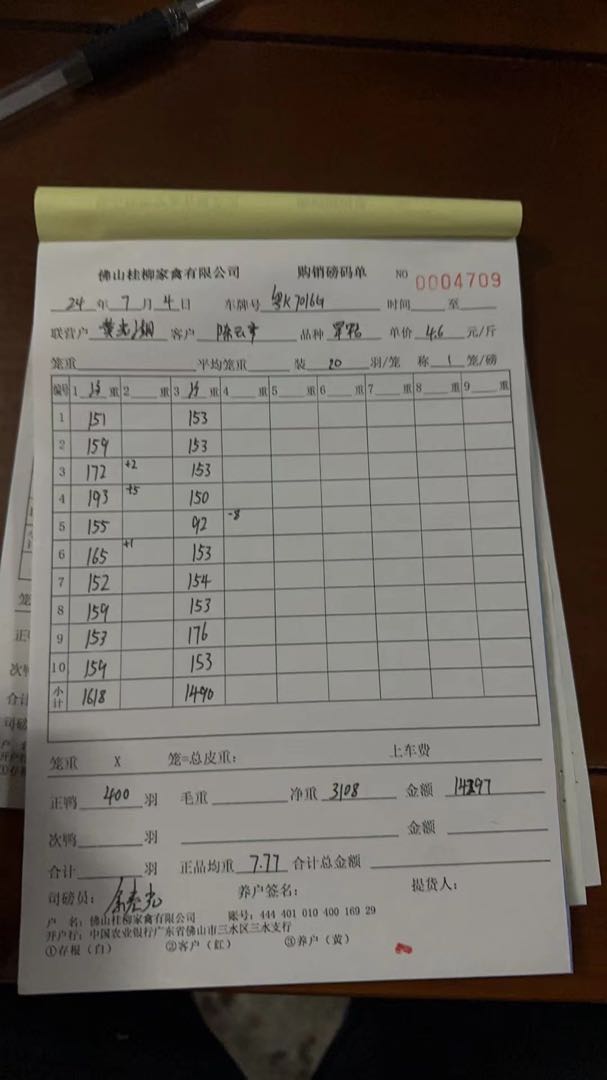 佛山桂柳家禽有限公司 购销磅码单 NO 0004709
24 年 7 月 4 日 车牌号 粤K7016G 时间 至
联营户 黄 客户 陈 品种 单价 4.6 元/斤
笼重 平均笼重 装 20 羽/笼 称 1 笼/磅
编号 1 净 重 2 重 3 净 重 4 重 5 重 6 重 7 重 8 重 9 重
1 151 153
2 159 153
3 172 +2 153
4 193 +5 150
5 155 92 -8
6 165 +1 153
7 152 154
8 159 153
9 153 176
10 159 153
小计 1618 1490
笼重 X 笼=总皮重: 上车费
正鸭 400 羽 毛重 净重 3108 金额 14297
次鸭 羽 金额
合计 羽 正品均重 7.77 合计总金额
司磅员: 养户签名: 提货人:
户 名: 佛山桂柳家禽有限公司 账号: 444 401 010 400 169 29
开户行: 中国农业银行广东省佛山市三水区三水支行
①存根(白) ②客户(红) ③养户(黄)